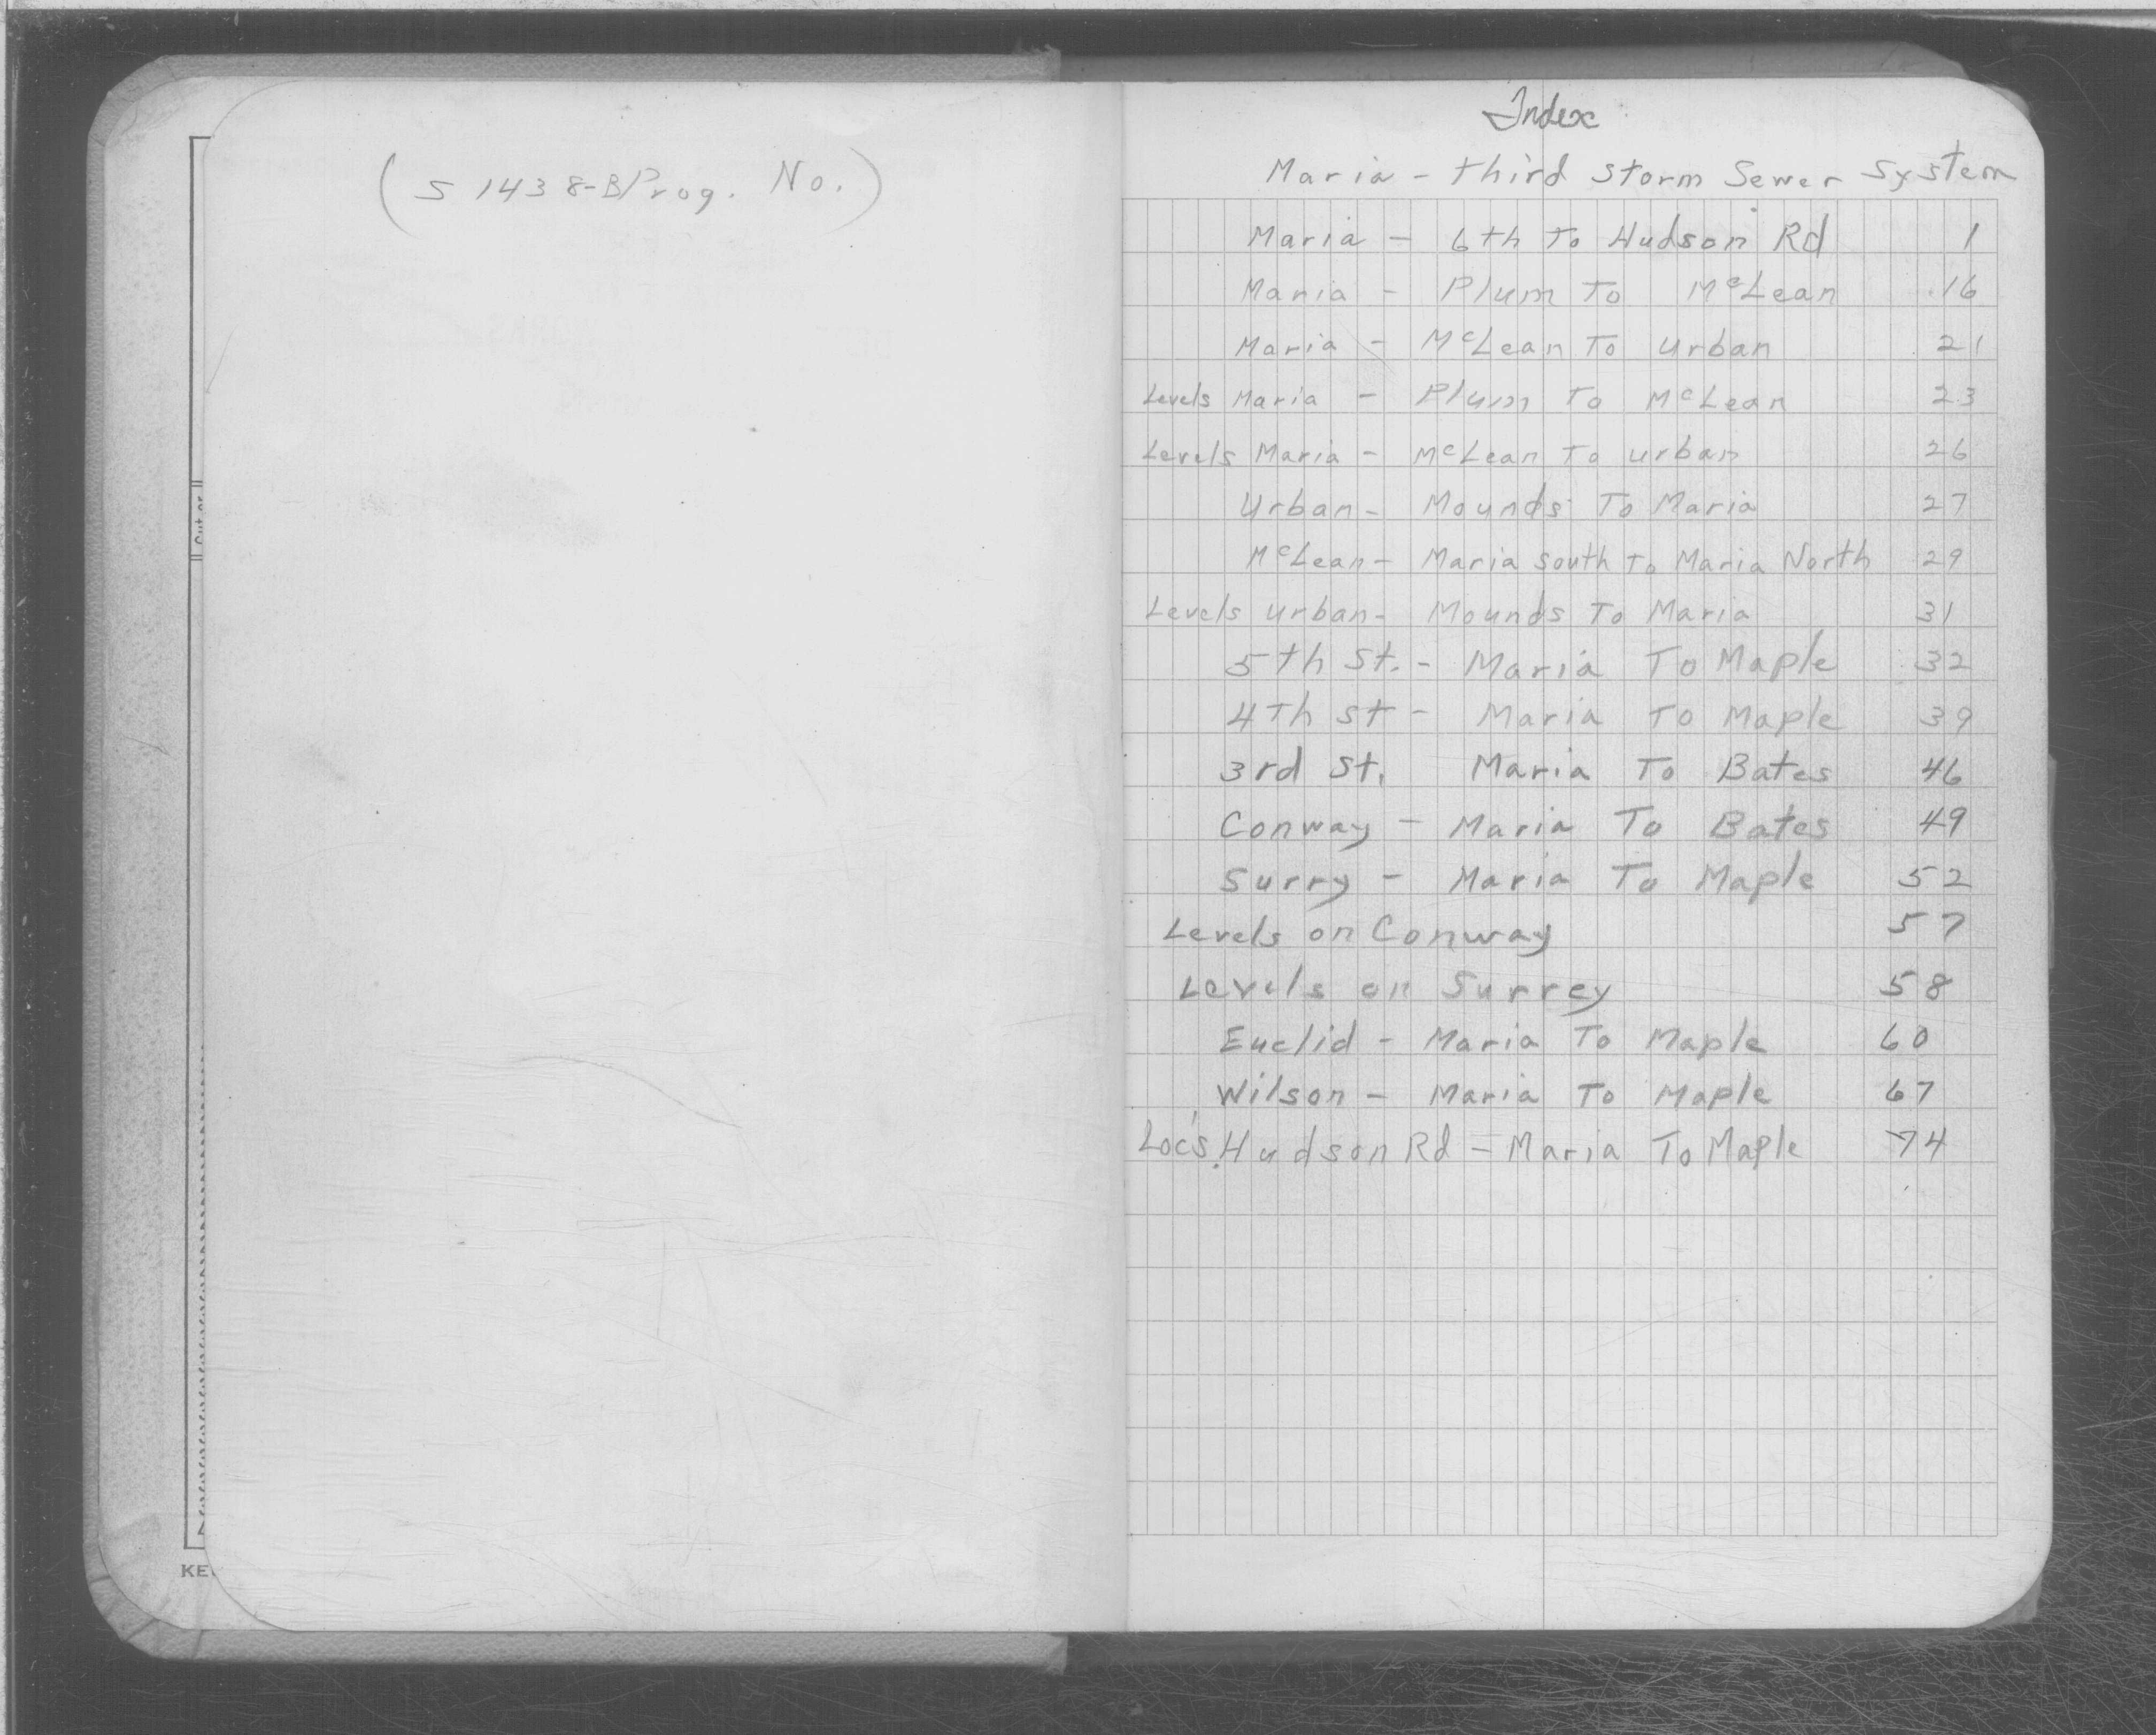 (S 1438-B Prog. No.)
KE
Index
Maria - Third Storm Sewer System
Maria - 6th To Hudson Rd 1
Maria - Plum To McLean 16
Maria - McLean To Urban 21
Levels Maria - Plum To McLean 23
Levels Maria - McLean To Urban 26
Urban - Mounds To Maria 27
McLean - Maria South To Maria North 29
Levels Urban - Mounds To Maria 31
5th St. - Maria To Maple 32
4th St - Maria To Maple 39
3rd St. Maria To Bates 46
Conway - Maria To Bates 49
Surry - Maria To Maple 52
Levels on Conway 57
Levels on Surrey 58
Euclid - Maria To Maple 60
Wilson - Maria To Maple 67
Loc's. Hudson Rd - Maria To Maple 74